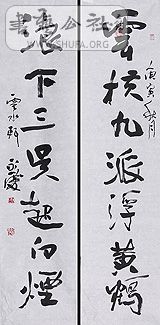 庚寅秋月
雲橫九派浮黃鶴
浪下三吳起白煙
雲水軒
SHUFA.ORG